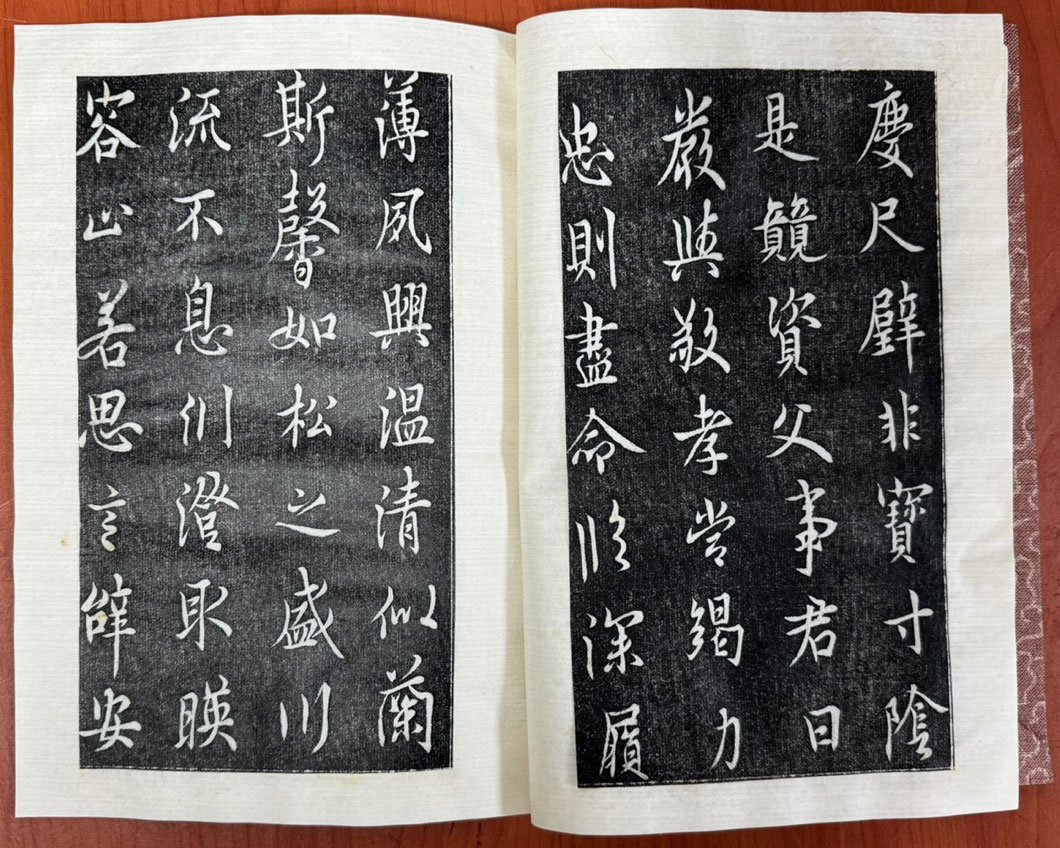 慶尺璧非寶寸陰
是競資父事君曰
嚴與敬孝當竭力
忠則盡命臨深履
薄夙興温清似蘭
斯馨如松之盛川
流不息淵澄取暎
容止若思言辭安